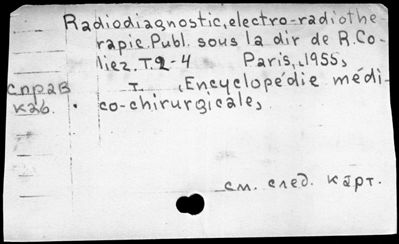 Radiodiagnostic,electro-radiothe
rapic.Publ. sous la dir de R.Co-
liez.T.2-4 Paris,1955,
справ т. ,Encyclopédie médi-
каб. co-chirurgicale,
см. след. карт.